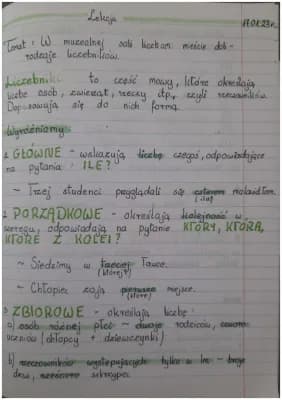 Lekcja 17.01.23r.
Temat: W muzealnej sali liczban mieście dob-
rodzieje liczebników.
Liczebniki to część mowy, które określają
liczbę osób, zwierząt, rzeczy itp., czyli rzeczowników.
Dopasowują się do nich formą.
Wyróżniamy
1. GŁÓWNE - wskazują liczbę czegoś, odpowiadające
na pytania ILE?
~ Trzej studenci przyglądali się czterem malowidłom.
(ilu)
2. PORZĄDKOWE - określają kolejność w
szeregu, odpowiadają na pytanie KTÓRY, KTÓRA,
KTÓRE Z KOLEI?
~ Siedzimy w trzeciej ławce.
(której?)
~ Chłopiec zają pierwsze miejsce.
(które)
3. ZBIOROWE - określają liczbę:
a) osób różnej płci - dwoje rodziców, cworo
uczniów (chłopcy + dziewczynki)
b) rzeczowników występujących tylko w lm - troje
drzwi, skrzypiec